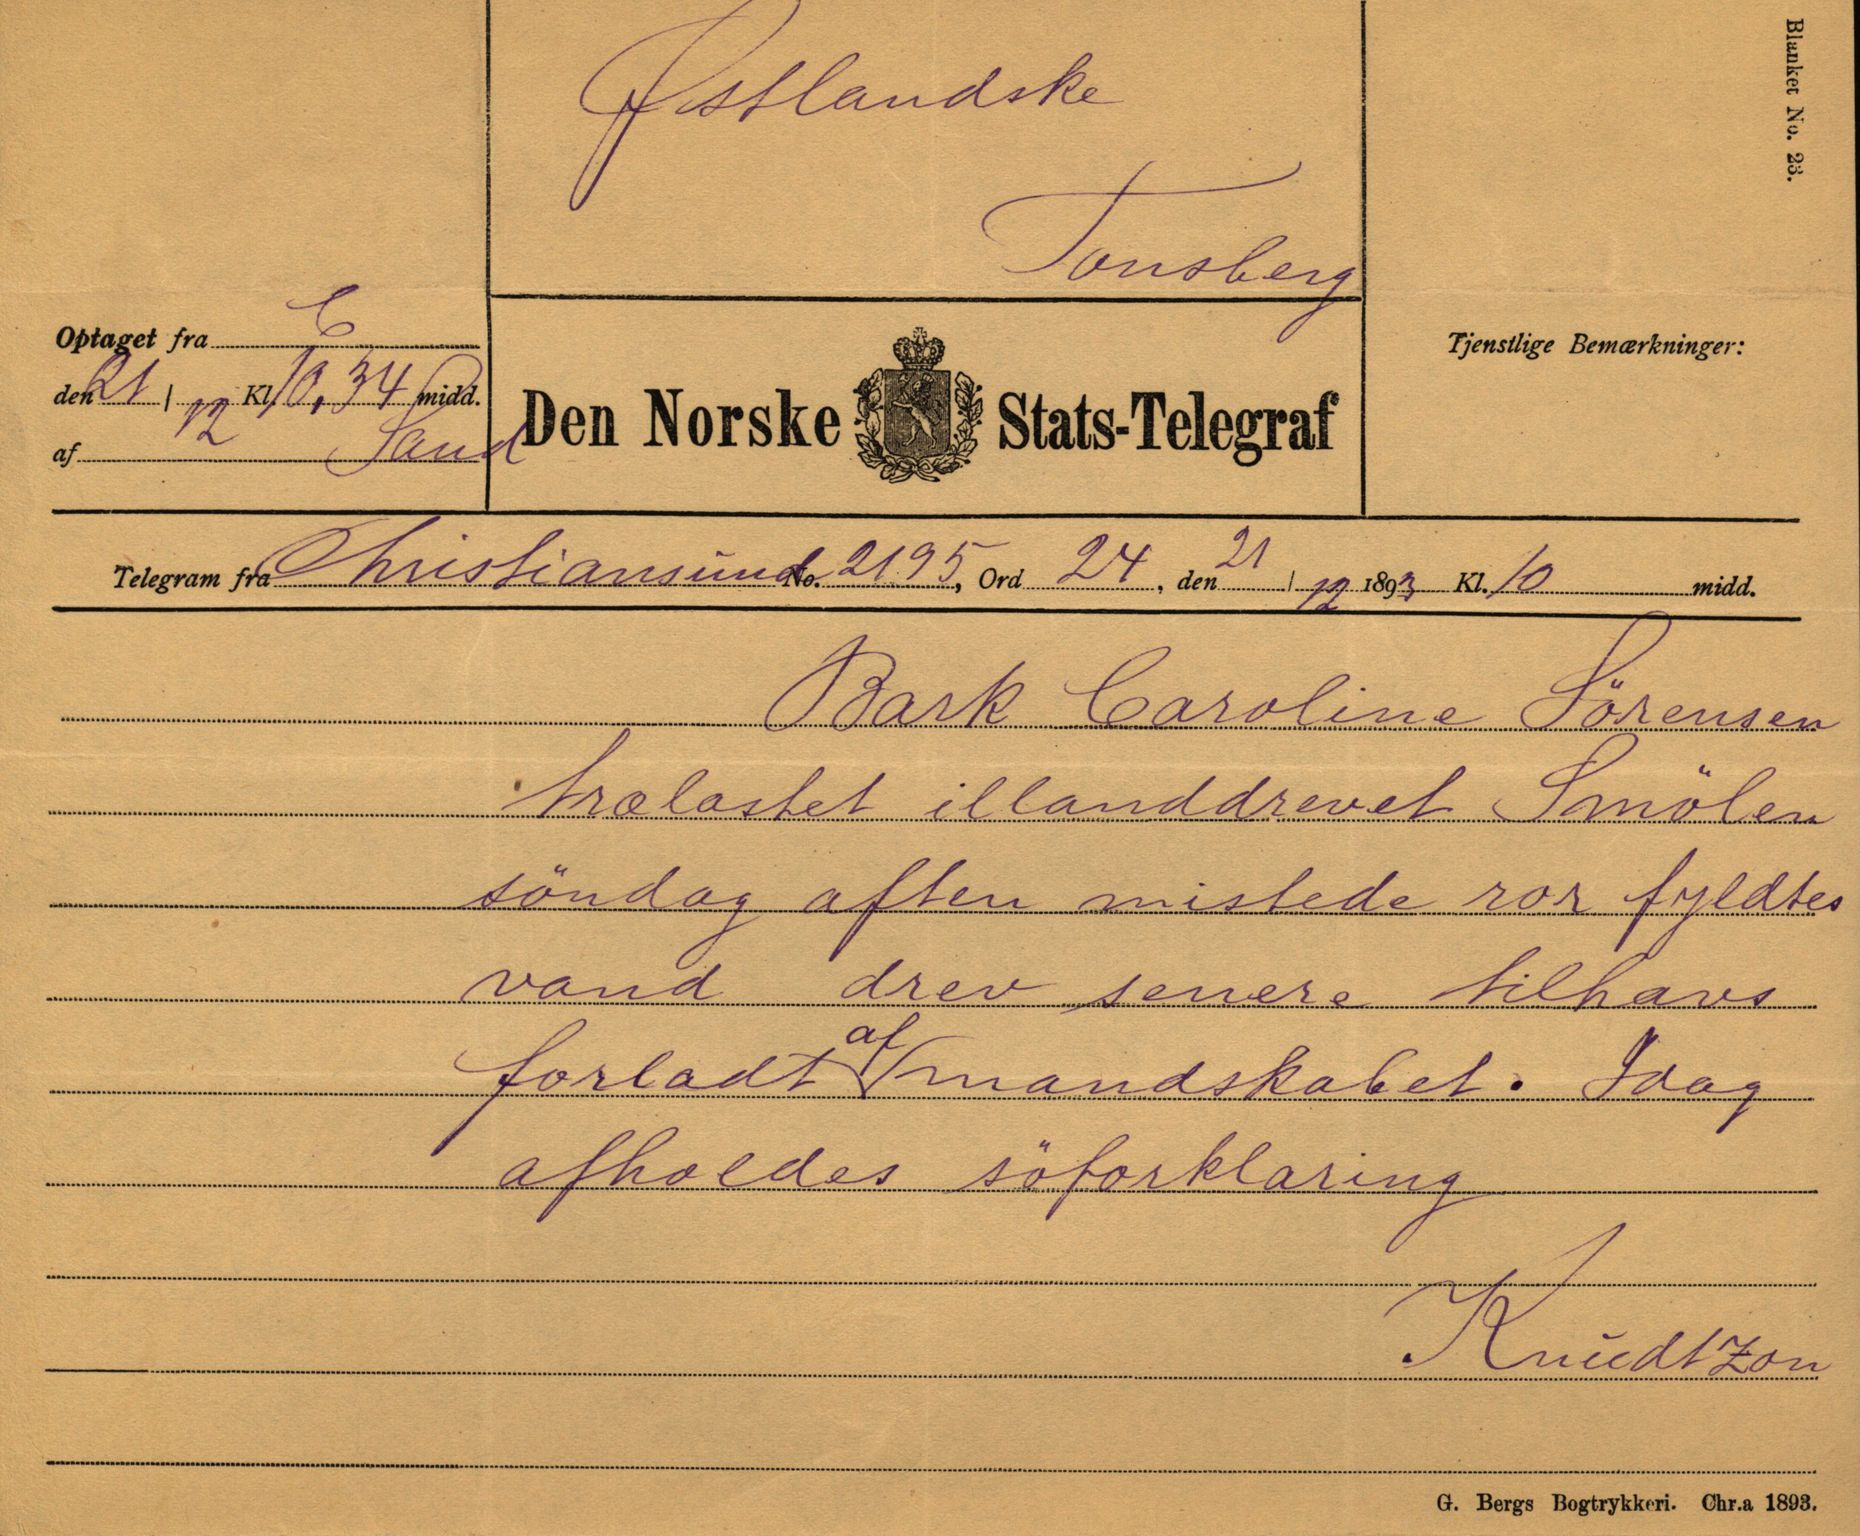 Blanket No. 23.
Østlandske
Tonsberg
Optaget fra C
den 21/12 Kl. 10,34 midd.
af Sand
Den Norske Stats-Telegraf
Tjenstlige Bemærkninger:
Telegram fra Christiansund No. 2195, Ord 24, den 21/12 1893 Kl. 10 midd.
Bark Caroline Sörensen
trælastet illanddrevet Smölen
söndag aften mistede ror fyldtes
vand drev senere tilhavs
forladt af mandskabet. Idag
afholdes söforklaring
Knudtzon
G. Bergs Bogtrykkeri. Chr.a 1893.